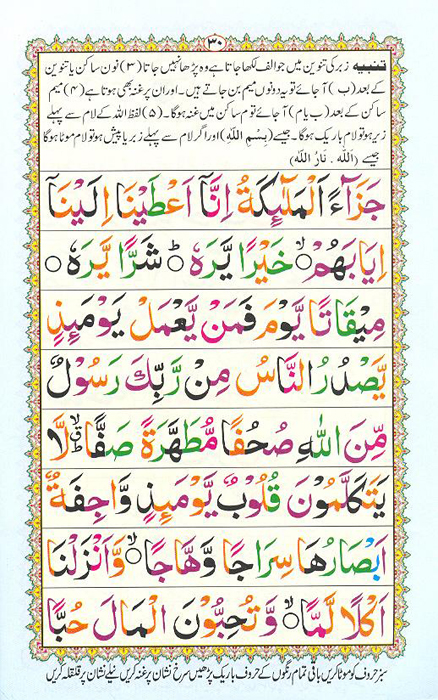 ۳۰
تنبیہ زبر کی تنوین میں جو الف لکھا جاتا ہے وہ پڑھا نہیں جاتا (۳) نون ساکن یا تنوین
کے بعد (ب) آجائے تو یہ دونوں میم بن جاتے ہیں۔ اور ان پر غنہ بھی ہوتا ہے (۴) میم
ساکن کے بعد (ب یا م) آجائے تو م ساکن میں غنہ ہوگا۔ (۵) لفظ اللہ کے لام سے پہلے
زیر ہو تو لام باریک ہوگا۔ جیسے (بِسْمِ اللّٰهِ) اور اگر لام سے پہلے زبر یا پیش ہو تو لام موٹا ہوگا
جیسے (اَللّٰهُ ، نَارُ اللّٰهِ)
جَزَآءً اَلْمَلٰٓئِكَةُ اِنَّآ اَعْطَيْنَا اِلَيْنَآ
اِيَابَهُمْ ۙ○ خَيْرًا يَّرَهٗ ؕ○ شَرًّا يَّرَهٗ ○
مِيْقَاتًا يَّوْمَ فَمَنْ يَّعْمَلْ يَوْمَئِذٍ
يَّصْدُرُ النَّاسُ مِنْ رَّبِّكَ رَسُوْلٌ
مِّنَ اللّٰهِ صُحُفًا مُّطَهَّرَةً صَفًّا لَّا
يَتَكَلَّمُوْنَ قُلُوْبٌ يَّوْمَئِذٍ وَّاجِفَةٌ
اَبْصَارُهَا سِرَاجًا وَّهَّاجًا ۙ○ وَّاَنْزَلْنَا
اَكْلًا لَّمًّا ۙ○ وَّتُحِبُّوْنَ الْمَالَ حُبًّا
سبز حروف کو موٹا کریں باقی تمام رنگوں کے حروف باریک پڑھیں سرخ نشان پر غنہ کریں نیلے نشان پر قلقلہ کریں